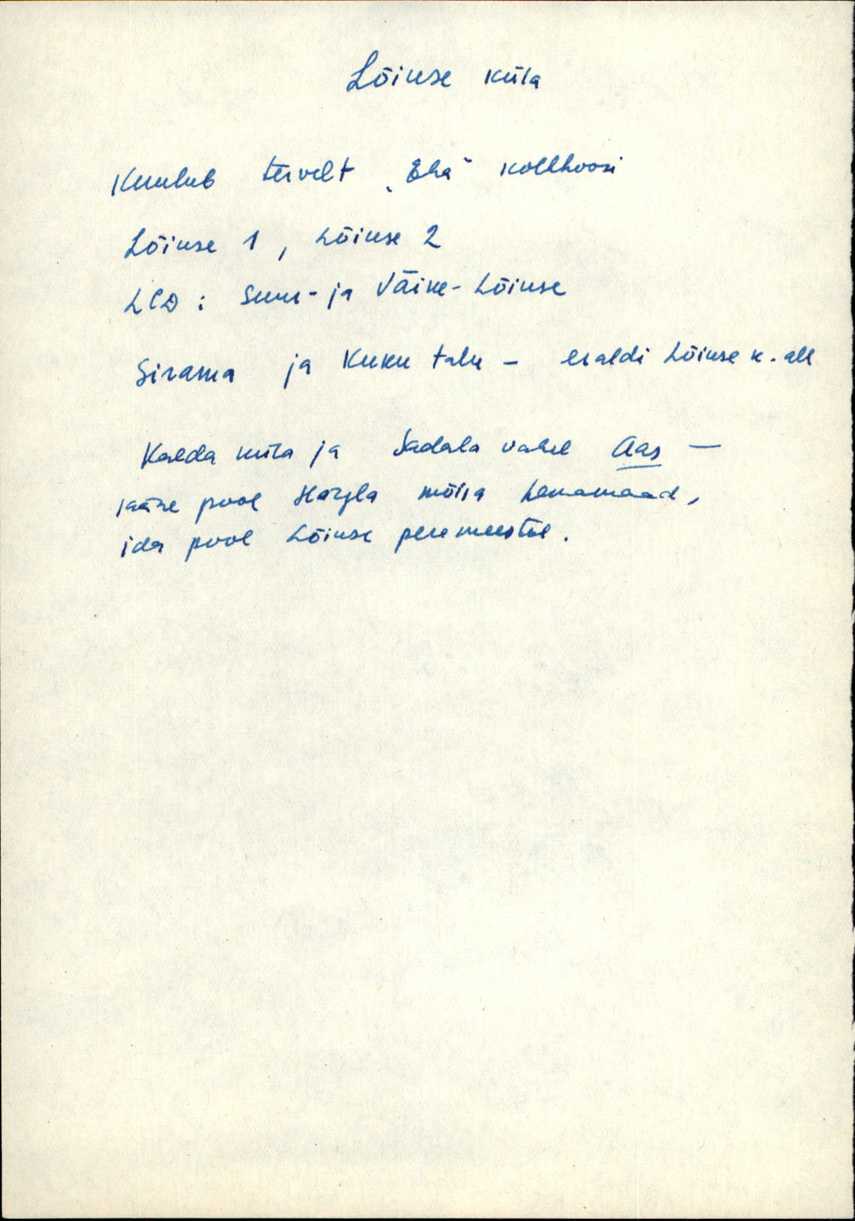 Lõiuse küla
Kuulub tervelt „Eha" kolhoosi
Lõiuse 1, Lõiuse 2
Suur- ja Väike-Lõiuse
ja Kuku talu – eraldi Lõiuse k. all
küla ja Sadala vahel Aas –
lääne pool mõisa heinamaad,
ida pool Lõiuse peremeestel.